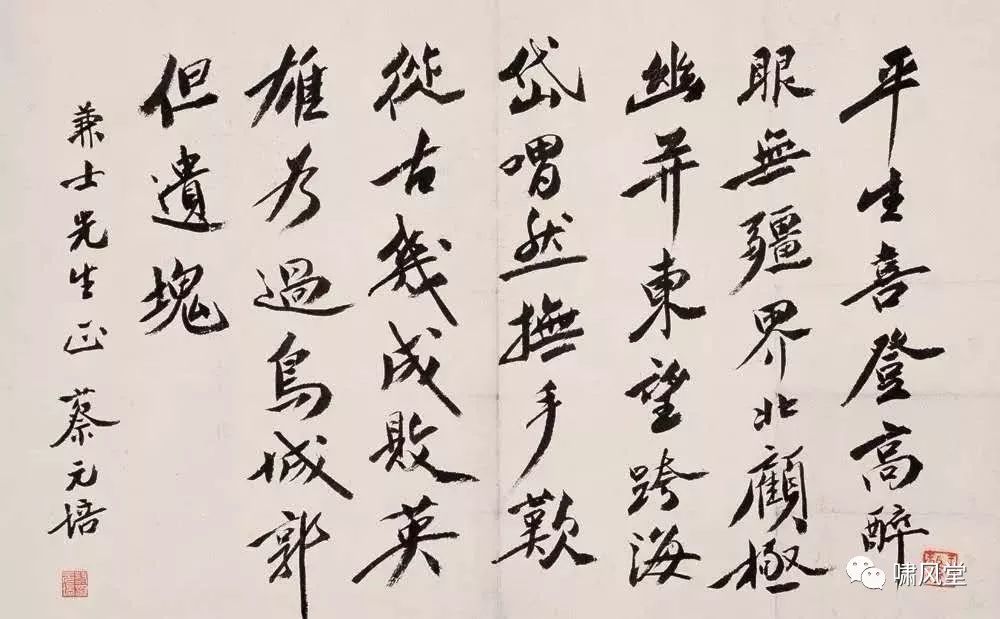 平生喜登高醉
眼無疆界北顧極
幽并東望跨海
岱喟然撫手歎
從古幾成敗英
雄為過鳥城郭
但遺塊
兼士先生正 蔡元培
啸风堂